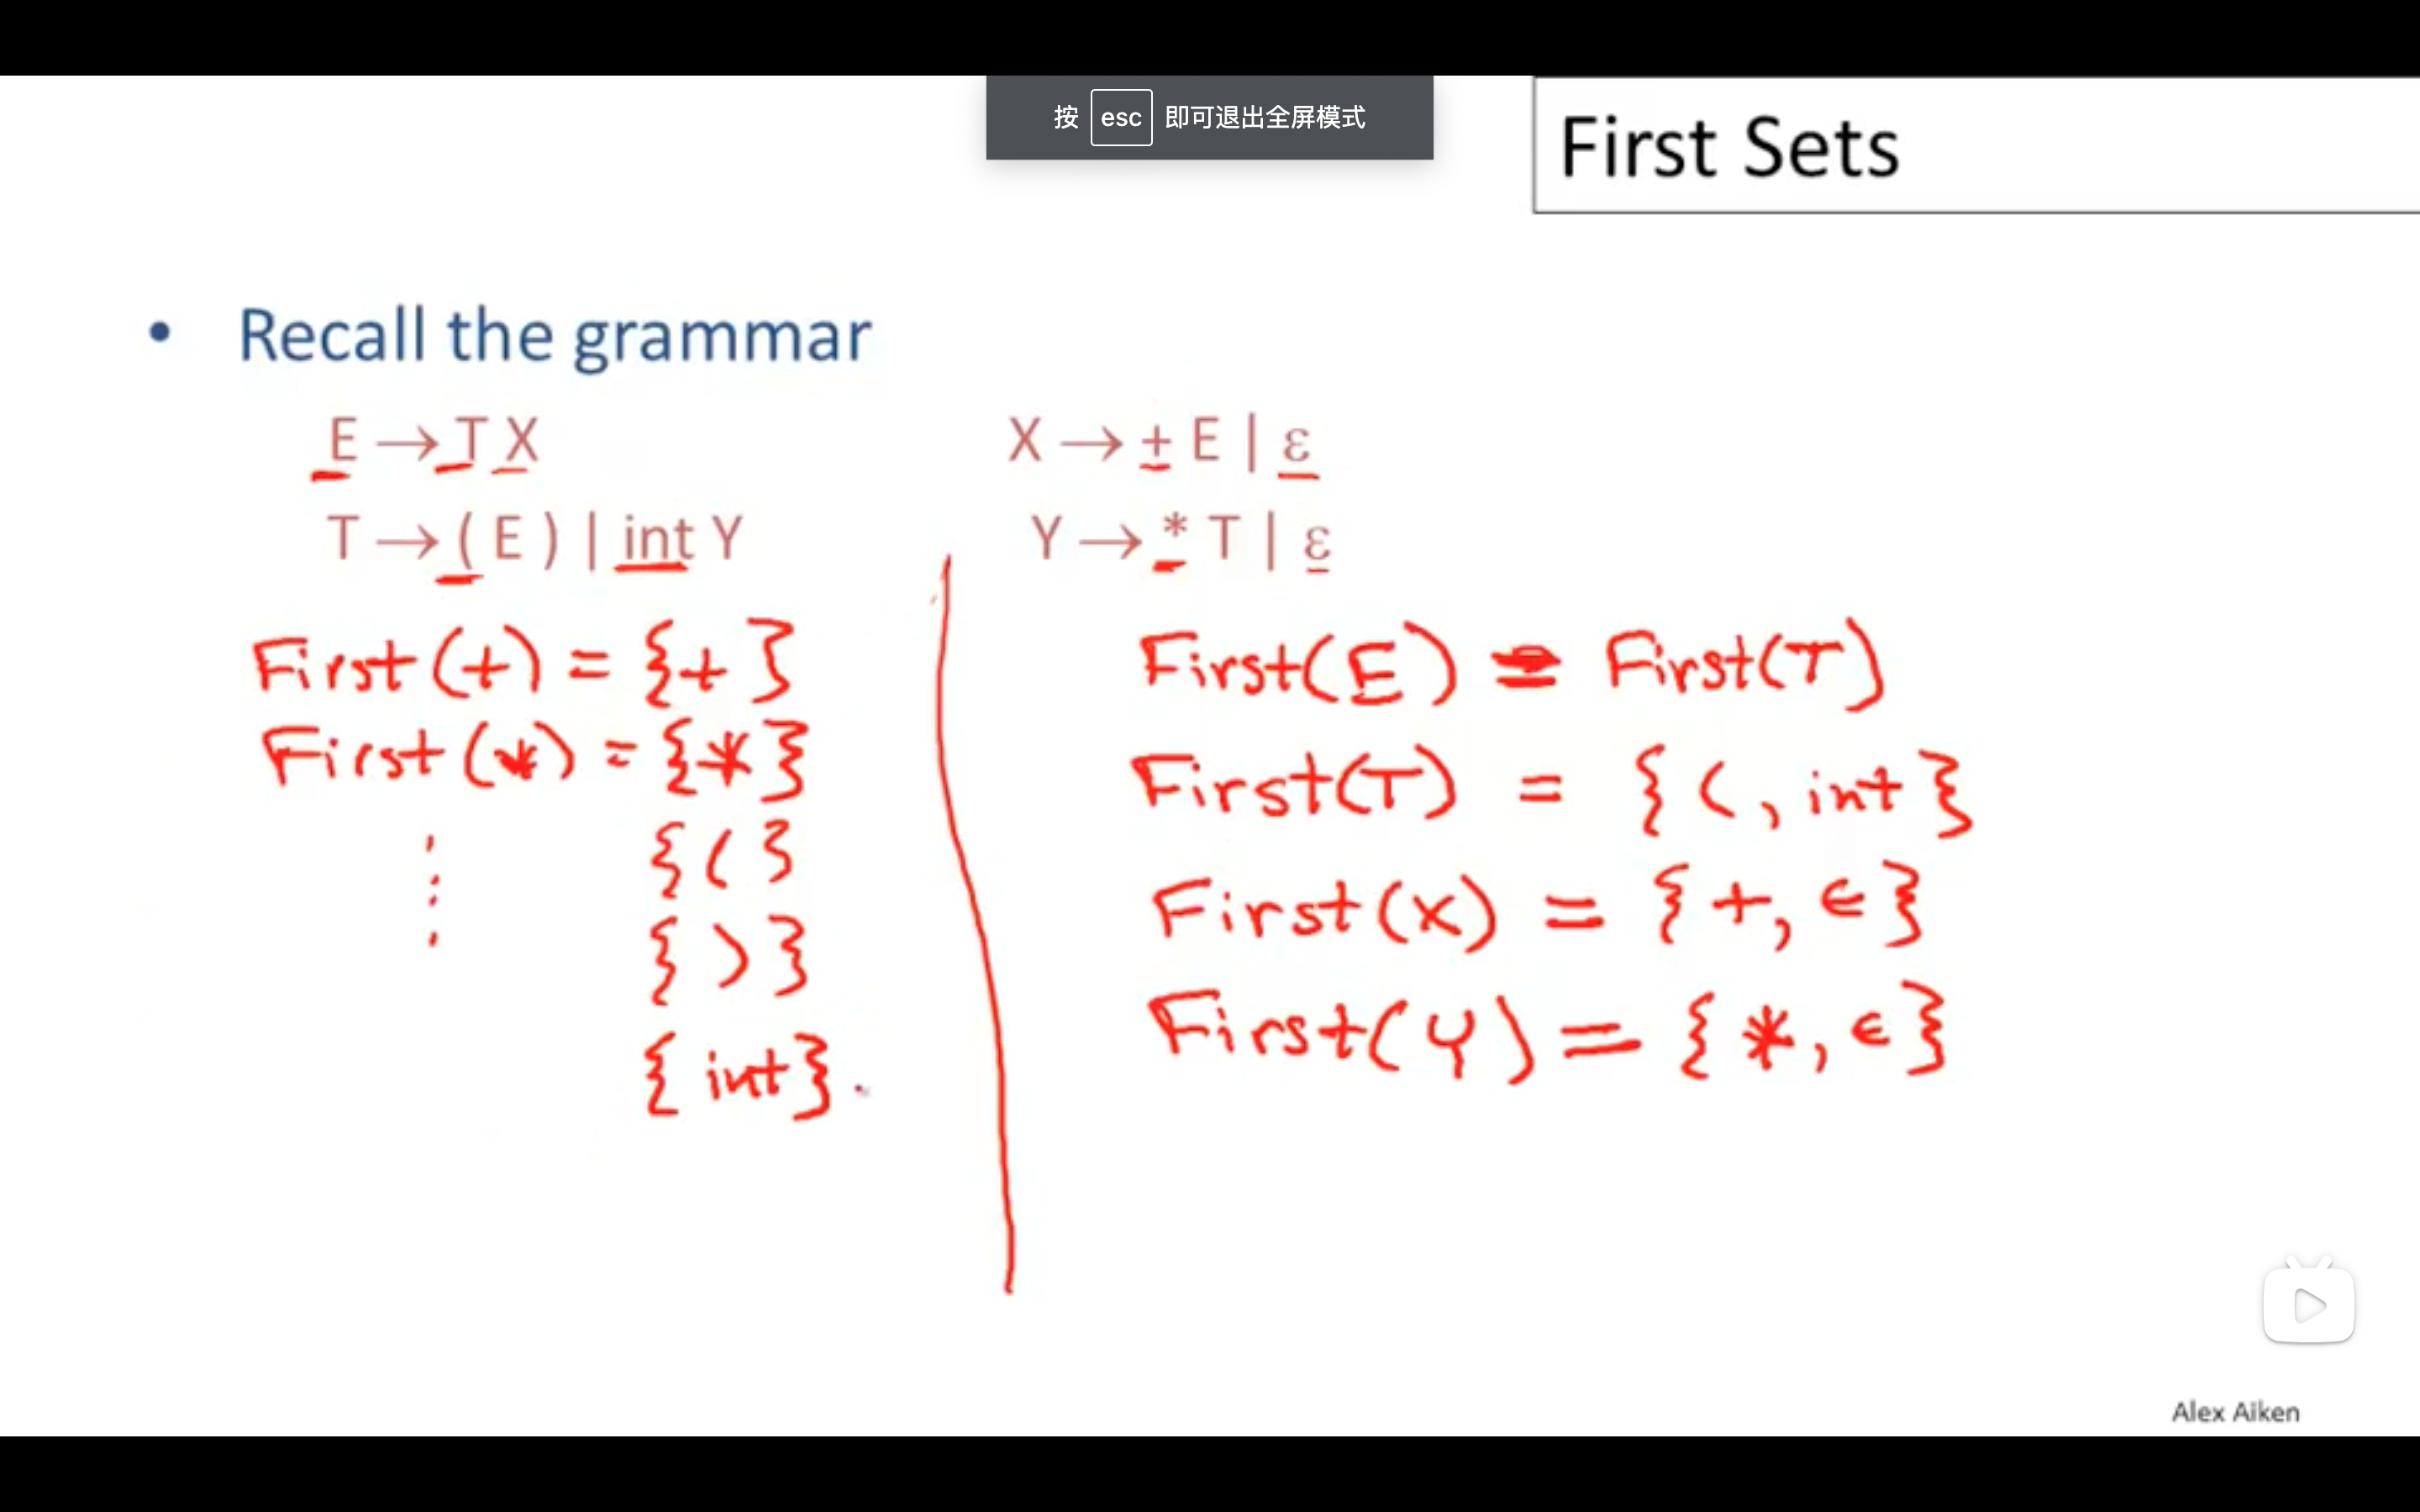 按 esc 即可退出全屏模式
First Sets
• Recall the grammar
E → T X
X → + E | ε
T → ( E ) | int Y
Y → * T | ε
First(+) = {+}
First(*) = {*}
⋮
{(}
{)}
{int}.
First(E) = First(T)
First(T) = {(, int}
First(X) = {+, ε}
First(Y) = {*, ε}
Alex Aiken